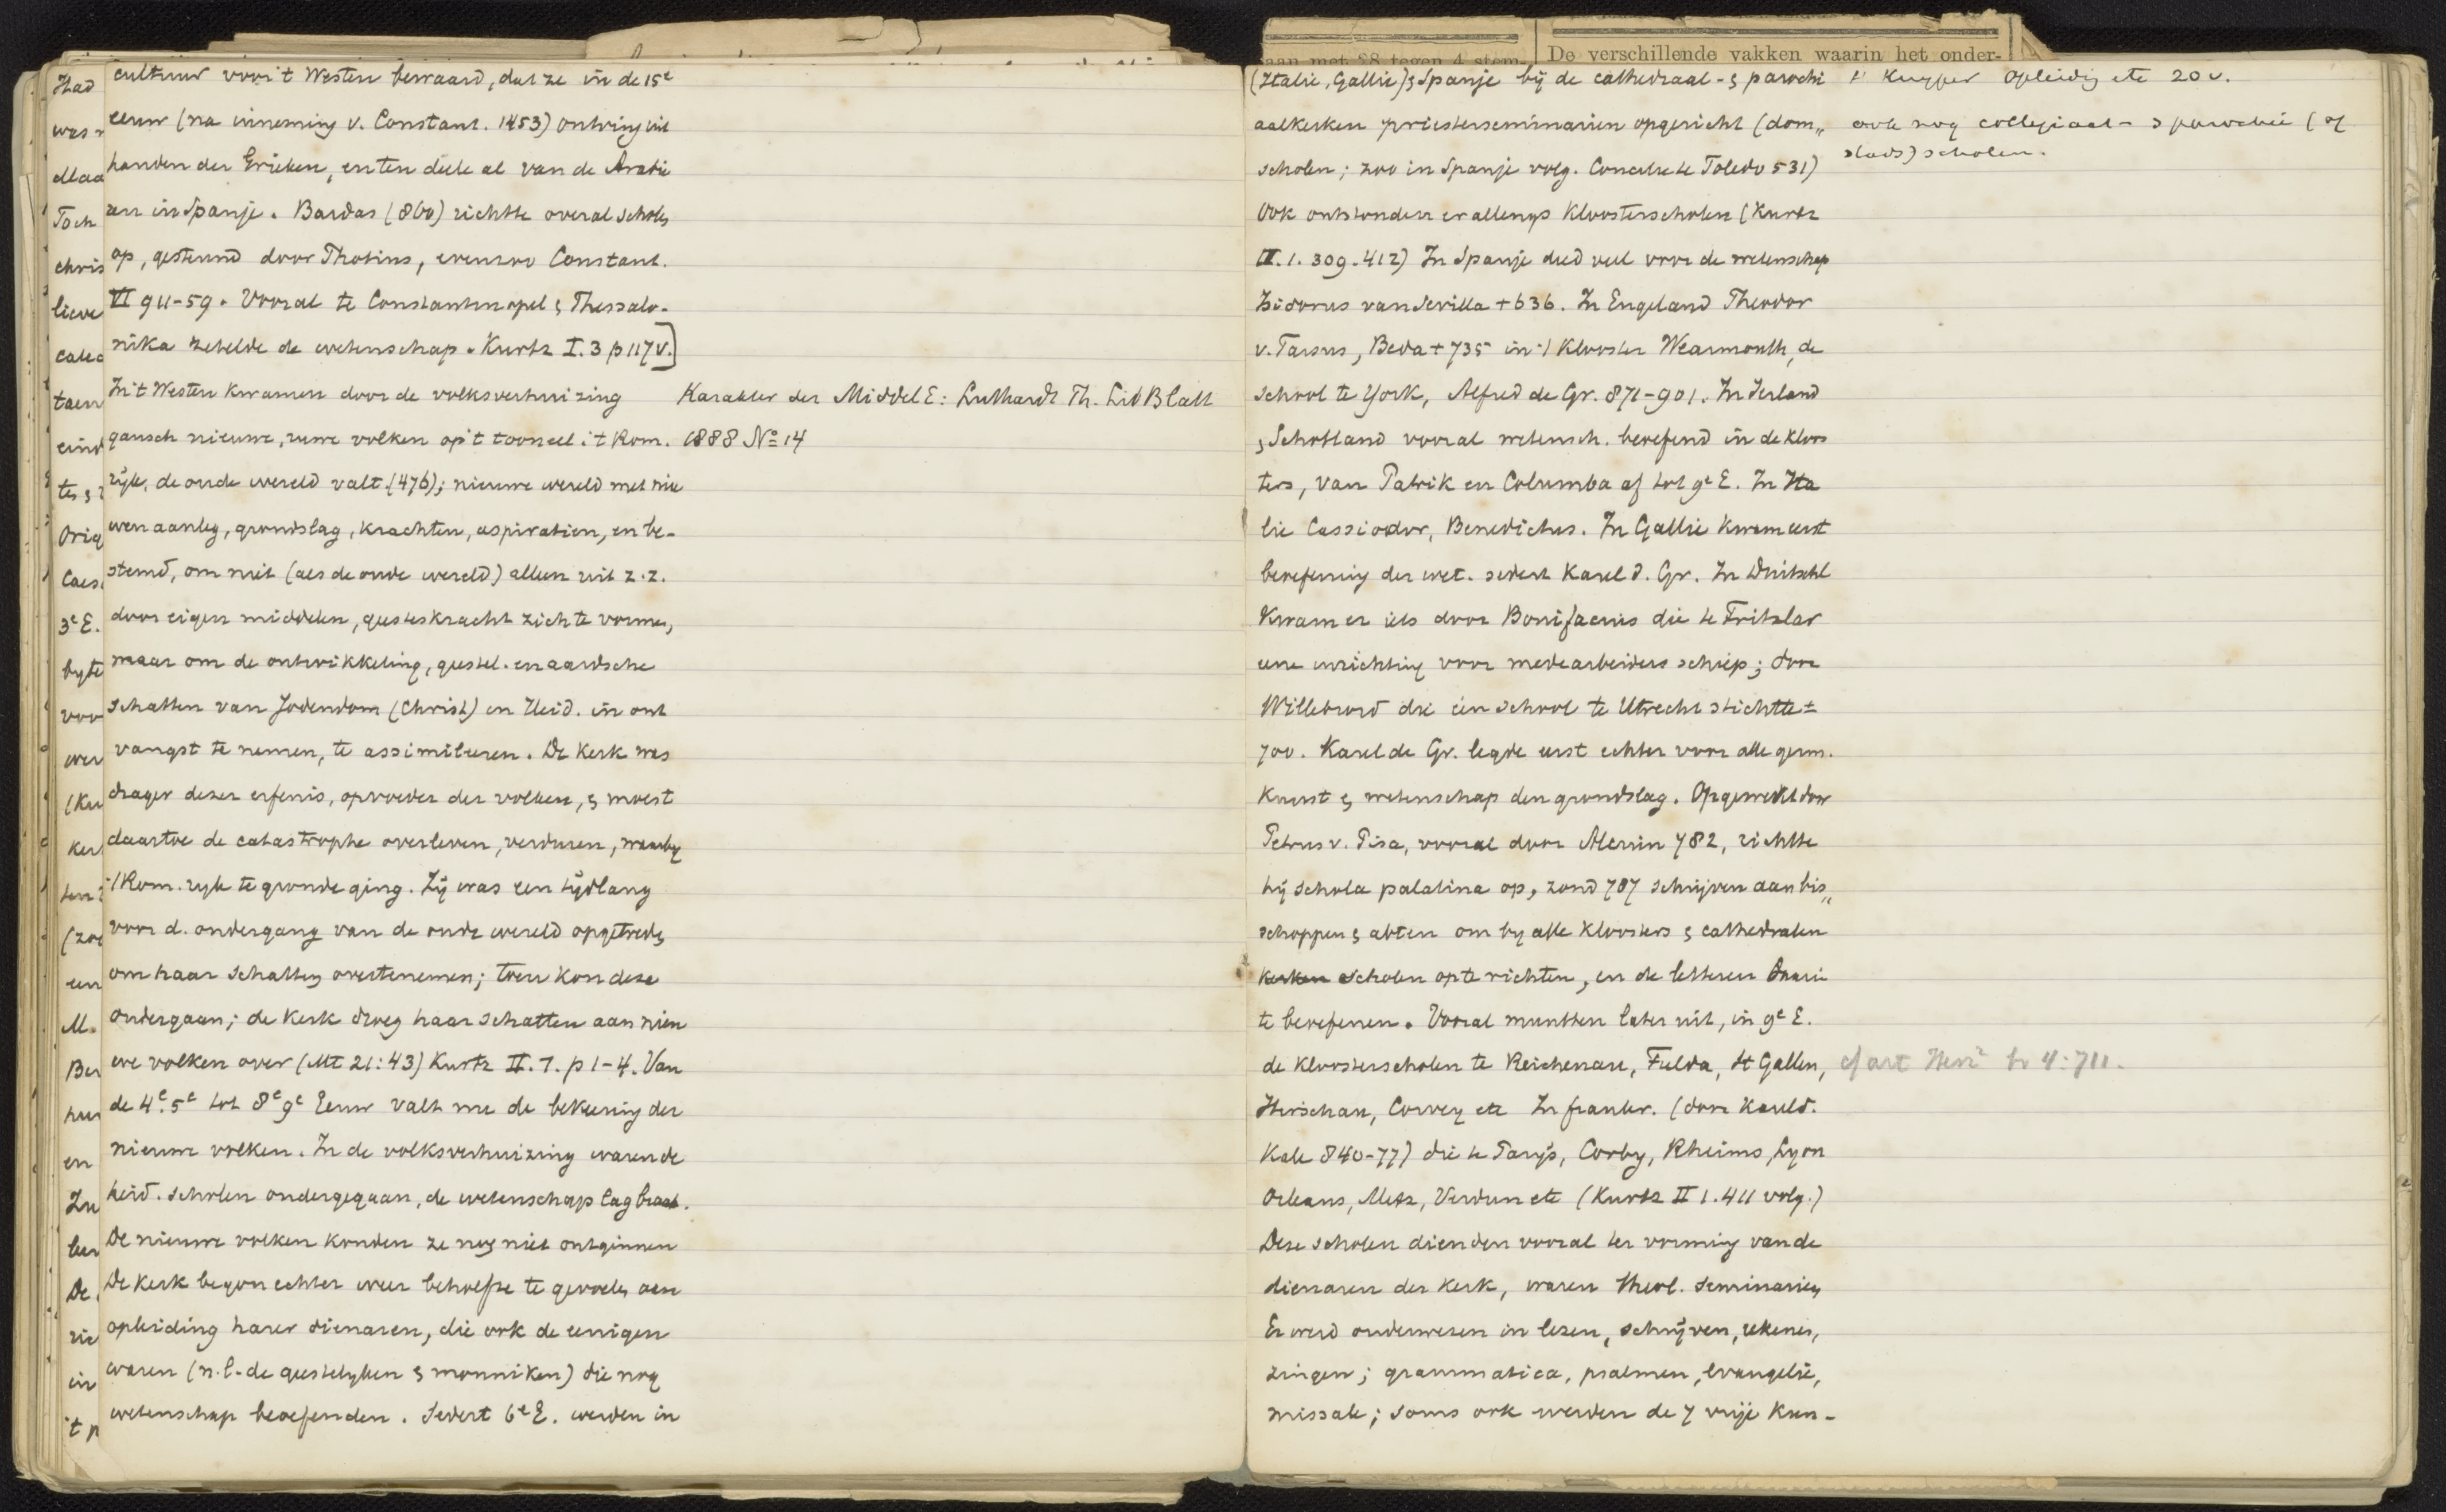 cultuur voor 't Westen bewaard, dat ze in de 15e
eeuw (na inneming v. Constant. 1453) ontving uit
handen der Grieken, en ten deele al van de Arabie
ren in Spanje. Bardas (860) richtte overal scholen
op, gesteund door Photius, evenzoo Constant.
VI 911-59. Vooral te Constantinopel & Thessalo-
nika zetelde de wetenschap. Kurtz I.3 p 117 v.]
In 't Westen kwamen door de volksverhuizing
gansch nieuwe, ruwe volken op 't tooneel; 't Rom.
rijk, de oude wereld valt (476); nieuwe wereld met nieu
wen aanleg, grondslag, krachten, aspiratien, en be-
stemd, om niet (als de oude wereld) alleen uit z.z.
door eigen middelen, geesteskracht zich te vormen,
maar om de ontwikkeling, geestel. en aardsche
schatten van Jodendom (Christ.) en Heid. in ont
vangst te nemen, te assimileeren. De kerk was
drager dezer erfenis, opvoeder der volken, & moest
daartoe de catastrophe overleven, verduren, waarby
't Rom. ryk te gronde ging. Zij was een tijdlang
voor d. ondergang van de oude wereld opgetreden
om haar schatten overtenemen; toen kon deze
ondergaan; de kerk droeg haar schatten aan nieu
we volken over (Mt 21:43) Kurtz II.1. p 1-4. Van
de 4e. 5e tot 8e 9e Eeuw valt nu de bekeering der
nieuwe volken. In de volksverhuizing waren de
heid. scholen ondergegaan, de wetenschap lag braak.
De nieuwe volken konden ze nog niet ontginnen
De kerk begon echter weer behoefte te gevoelen aan
opleiding harer dienaren, die ook de eenigen
waren (n.l. de geestelyken & monniken) die nog
wetenschap beoefenden. Sedert 6e E. werden in
Karakter der Middel E: Luthardt Th. Lit Blatt
1888 No 14
Had
was
Toch
chris
lieve
catec
taen
eind
tes &
Orig
Caes.
3e E.
byte
voor
wer
(Ku
ker
(zoo
een
M.
Ber
hun
en
In
leer
De
rie
in
't p
aan met 28 tegen 4 stem-
De verschillende vakken waarin het onder-
(Italie, Gallie) & Spanje bij de cathedraal- & parochi
aalkerken priesterseminarien opgericht (dom„
scholen; zoo in Spanje volg. Concilie te Toledo 531)
Ook ontstonden er allengs Kloosterscholen (Kurtz
II.1.309.412) In Spanje deed veel voor de wetenschap
Isidorus van Sevilla +636. In Engeland Theodor
v. Tarsus, Beda +735 in 't Klooster Wearmouth, de
school te York, Alfred de Gr. 871-901. In Ierland
& Schotland vooral wetensch. beoefend in de kloos
ters, van Patrik en Columba af tot 9e E. In Ita
lie Cassiodor, Benedictus. In Gallie kwam eerst
beoefening der wet. sedert Karel d. Gr. In Duitschl
kwam er iets door Bonifacius die te Fritzlar
eene inrichting voor medearbeiders schiep; door
Willebrord die een school te Utrecht stichtte ±
700. Karel de Gr. legde eerst echter voor alle germ.
Kunst & wetenschap den grondslag. Opgewekt door
Petrus v. Pisa, vooral door Alcuin 782, richtte
hij schola palatina op, zond 787 schrijven aan bis„
schoppen & abten om by alle kloosters & cathedralen
kerken scholen opte richten, en de letteren daarin
te beoefenen. Vooral muntten later uit, in 9e E.
de kloosterscholen te Reichenau, Fulda, St Gallen,
Hirschau, Corvey etc In frankr. (door Karel d.
Kale 840-77) die te Parijs, Corby, Rheims, Lyon
Orleans, Metz, Verdun etc (Kurtz II 1.411 volg.)
Deze scholen dienden vooral ter vorming van de
dienaren der kerk, waren theol. seminarien
Er werd onderwezen in lezen, schrijven, rekenen,
zingen; grammatica, psalmen, evangelie,
missale; soms ook werden de 7 vrije kun-
Kuyper Opleiding etc 20 v.
ook nog collegiaal- & parochie (of
stads) scholen.
cf art 4:711.